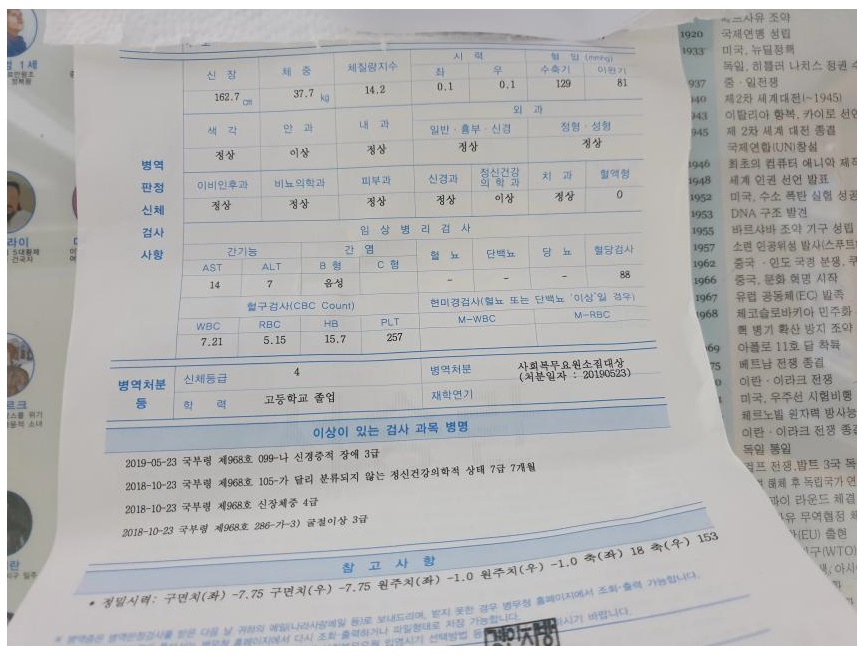 신 장 체 중 체질량지수 시 력 혈 압 (mmhg)
좌 우 수축기 이완기
162.7 cm 37.7 kg 14.2 0.1 0.1 129 81
색 각 안 과 내 과 외 과
일반·흉부·신경 정형·성형
정상 이상 정상 정상 정상
병역
판정
신체
검사
사항
이비인후과 비뇨의학과 피부과 신경과 정신건강의학과 치 과 혈액형
정상 정상 정상 정상 이상 정상 O
임 상 병 리 검 사
간기능 간 염 혈 뇨 단백뇨 당 뇨 혈당검사
AST ALT B 형 C 형
14 7 음성 - - - 88
혈구검사(CBC Count) 현미경검사(혈뇨 또는 단백뇨 '이상'일 경우)
WBC RBC HB PLT M-WBC M-RBC
7.21 5.15 15.7 257
병역처분
등
신체등급 4 병역처분 사회복무요원소집대상
(처분일자 : 20190523)
학 력 고등학교 졸업 재학연기
이상이 있는 검사 과목 병명
2019-05-23 국부령 제968호 099-나 신경증적 장애 3급
2018-10-23 국부령 제968호 105-가 달리 분류되지 않는 정신건강의학적 상태 7급 7개월
2018-10-23 국부령 제968호 신장체중 4급
2018-10-23 국부령 제968호 286-가-3) 굴절이상 3급
참 고 사 항
• 정밀시력: 구면치(좌) -7.75 구면치(우) -7.75 원주치(좌) -1.0 원주치(우) -1.0 축(좌) 18 축(우) 153
조약
1920 국제연맹 성립
1933 미국, 뉴딜정책
독일, 히틀러 나치스 정권 수
937 중·일전쟁
940 제2차 세계대전(~1945)
943 이탈리아 항복, 카이로 선언
945 제 2차 세계 대전 종결
국제연합(UN)창설
1946 최초의 컴퓨터 에니악 제작
1948 세계 인권 선언 발표
1952 미국, 수소 폭탄 실험 성공
1953 DNA 구조 발견
1955 바르샤바 조약 기구 성립
1957 소련 인공위성 발사(스푸트
1962 중국·인도 국경 분쟁, 쿠
1966 중국, 문화 혁명 시작
1967 유럽 공동체(EC) 발족
1968 체코슬로바키아 민주화
핵 병기 확산 방지 조약
969 아폴로 11호 달 착륙
75 베트남 전쟁 종결
이란·이라크 전쟁
미국, 우주선 시험비행
체르노빌 원자력 방사능
이란·이라크 전쟁 종결
독일 통일